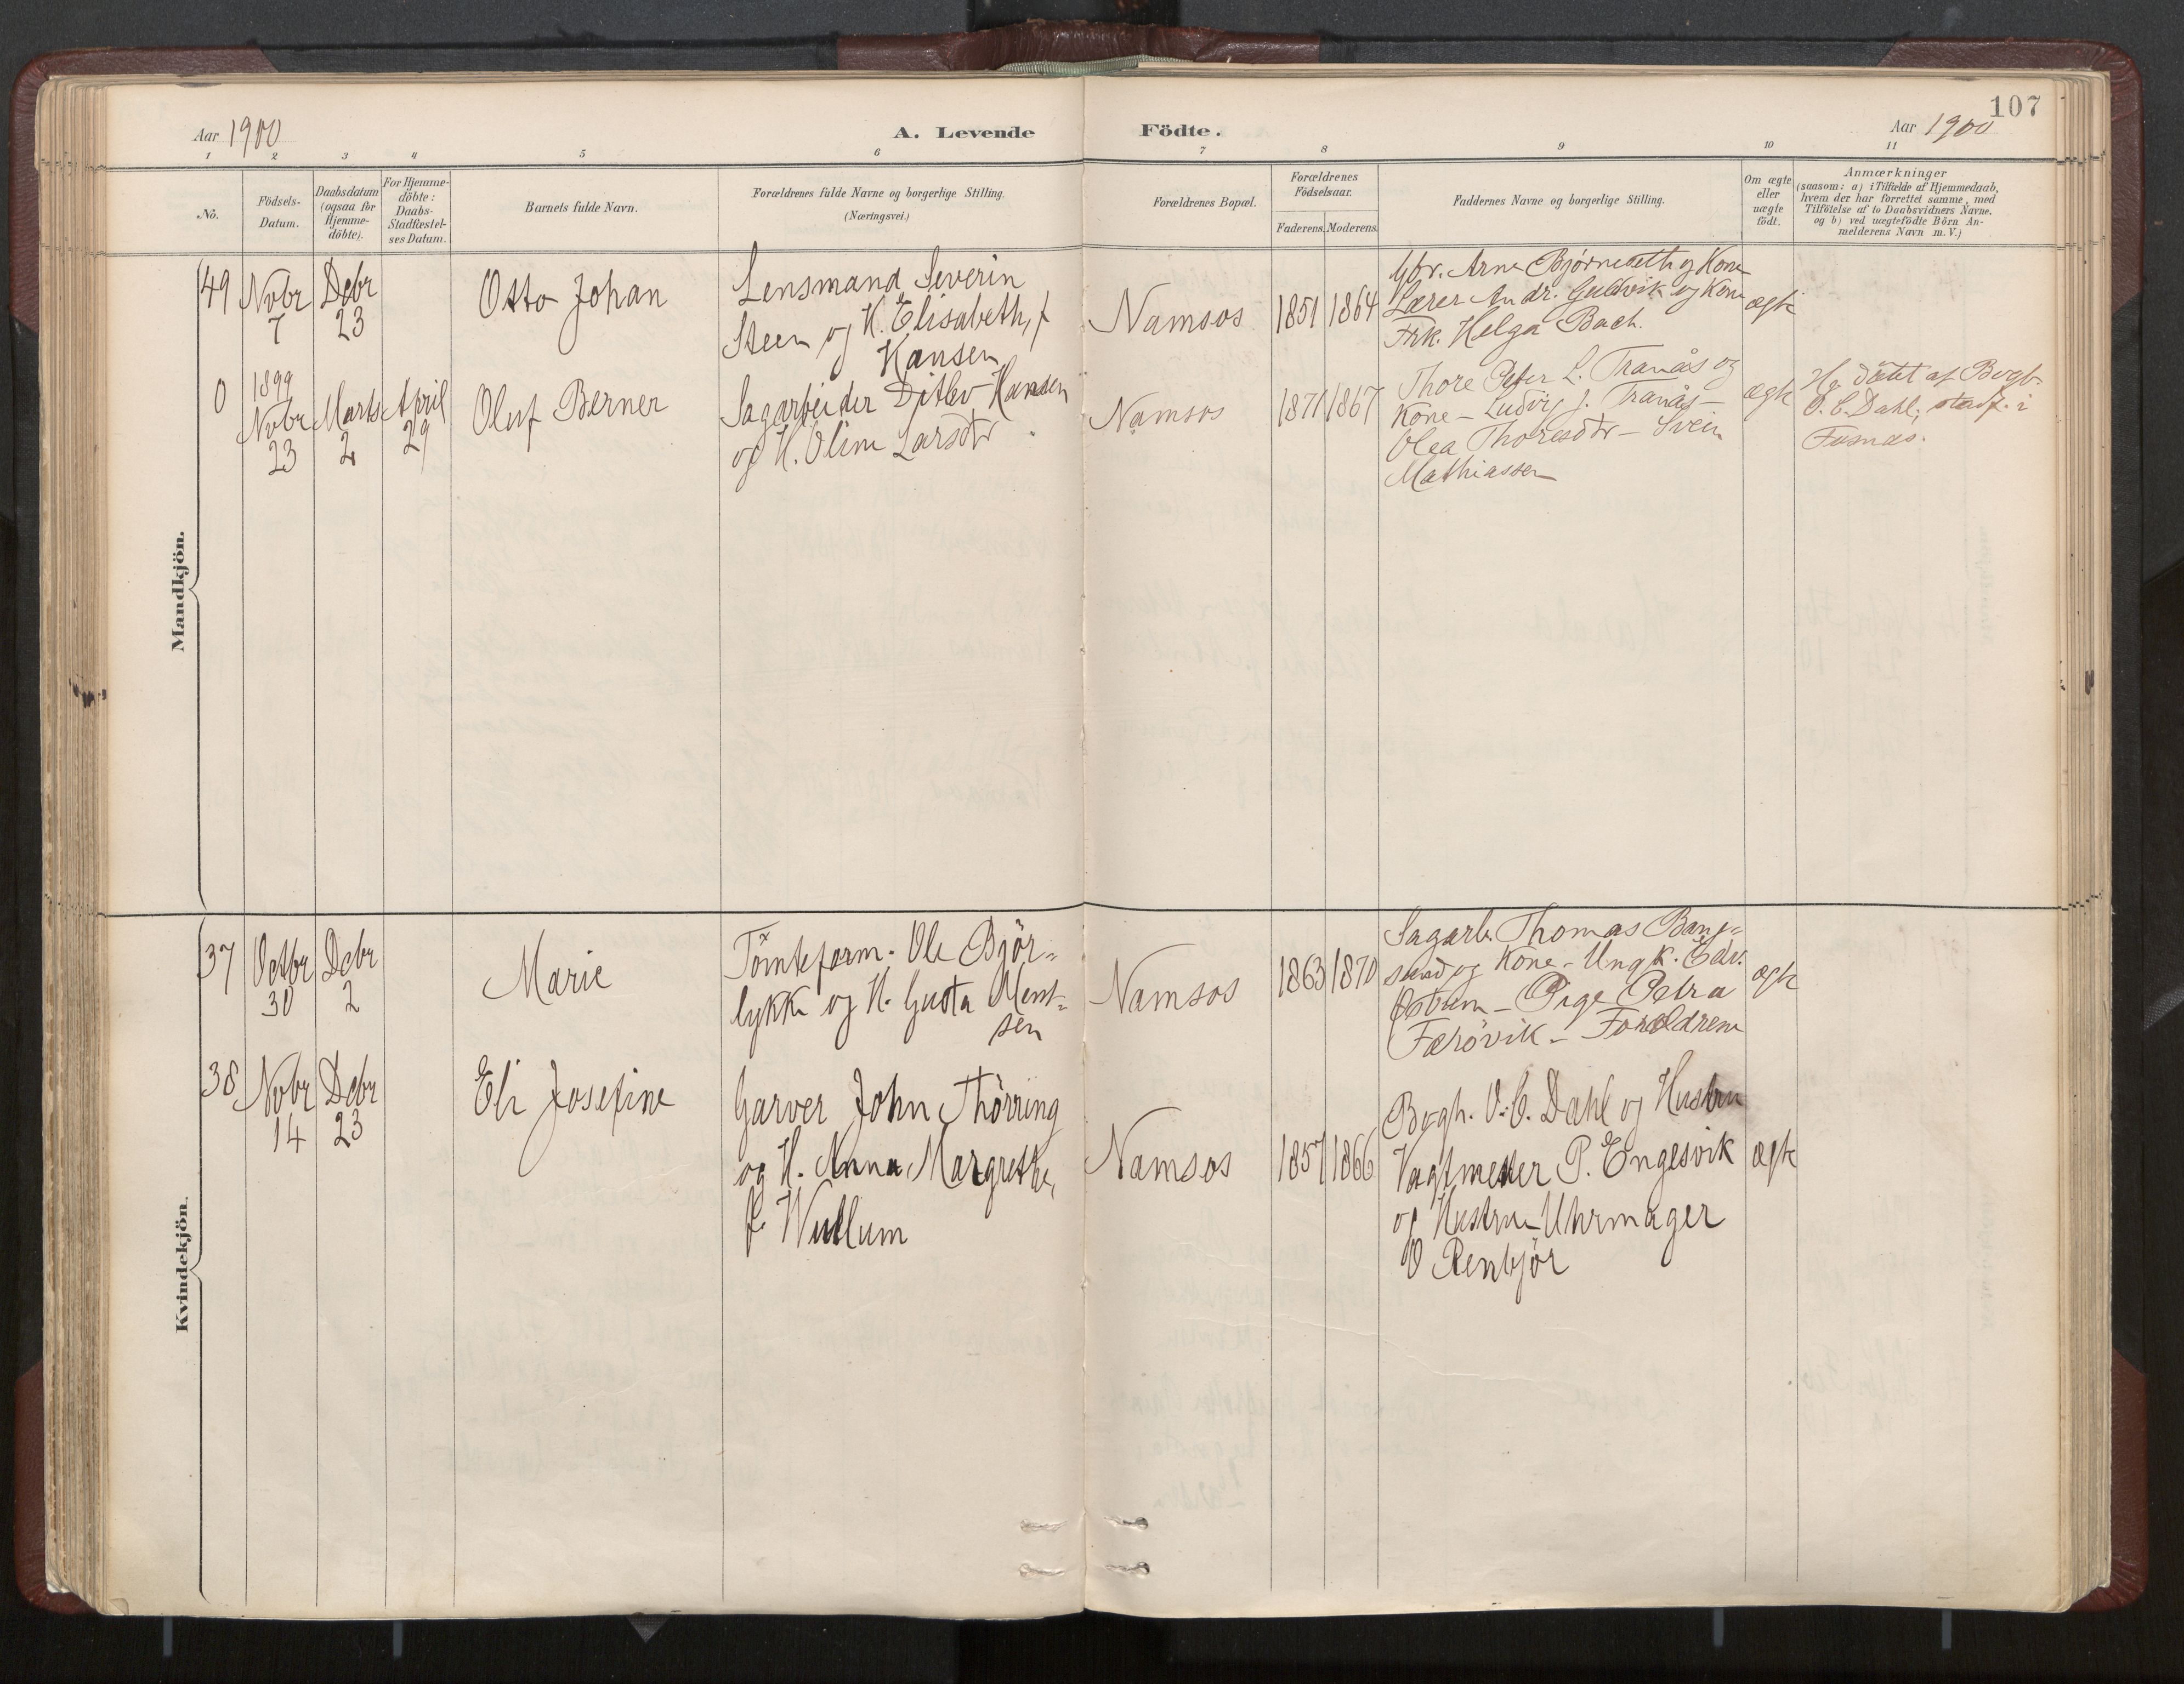 107
Aar 1900
A. Levende Födte.
Aar 1900
1 2 3 4 5 6 7 8 9 10 11
No.
Födsels-
Datum.
Daabsdatum
(ogsaa for
Hjemme-
döbte).
For Hjemme-
döbte:
Daabs-
Stadfæstel-
ses Datum.
Barnets fulde Navn.
Forældrenes fulde Navne og borgerlige Stilling.
(Næringsvei.)
Forældrenes Bopæl.
Forældrenes
Födselsaar.
Faderens. Moderens.
Faddernes Navne og borgerlige Stilling.
Om ægte
eller
uægte
födt.
Anmærkninger
(saasom: a) i Tilfælde af Hjemmedaab,
hvem der har forrettet samme, med
Tilföielse af to Daabsvidners Navne.
og b) ved uægtefödte Börn An-
melderens Navn m. V.)
Mandkjön.
49
Nvbr
7
Debr
23
Otto Johan
Lensmand Severin
Steen og H. Elisabeth, f
Hansen
Namsos
1851
1864
Gbr. Arne Bjørneseth og Kone
Lærer Andr. Gulvik og Kone
Frk. Helga Bach.
ægte
0
1899
Novbr
23
Marts
2
April
29
Oluf Berner
Sagarbeider Ditlev Hansen
og H. Oline Larsdtr
Namsos
1871
1867
Thore Peter L. Tranås og
Kone - Ludvig J. Tranås -
Olea Thoresdtr - Svein
Mathiassen
ægte
Hj. døbt af Bogh.
O. C. Dahl; stadf. i
Fosnæs.
Kvindekjön.
37
Octbr
30
Debr
2
Marie
Tömteform. Ole Björ-
lykke og H. Gusta Ment-
sen
Namsos
1863
1870
Sagarb. Thomas Bang-
sund og Kone - Ungk. Edv.
Østrem - Pige Petra
Færövik - Forældrene
ægte
38
Nvbr
14
Debr
23
Eli Josefine
Garver John Thörring
og H. Anna Margrethe,
f. Wullum
Namsos
1857
1866
Bogh. O. C. Dahl og Hustru
Vagtmester P. Engesvik
og Hustru - Uhrmager
O Renbjör
ægte